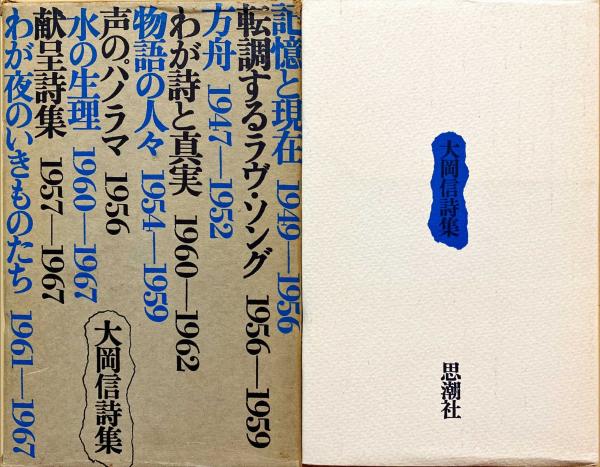 記憶と現在 1949—1956
転調するラヴ・ソング 1956—1959
方舟 1947—1952
わが詩と真実 1960—1962
物語の人々 1954—1959
声のパノラマ 1956
水の生理 1960—1967
献呈詩集 1957—1967
わが夜のいきものたち 1961—1967
大岡信詩集
大岡信詩集
思潮社